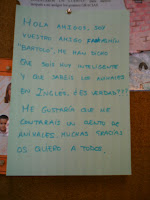 HOLA AMIGOS, SOY
VUESTRO AMIGO
"BARTOLO". ME HAN DICHO
QUE SOIS MUY INTELIGENTE
Y QUE SABÉIS LOS ANIMALES
EN INGLES. ¿ES VERDAD???
ME GUSTARÍA QUE ME
CONTARAIS UN CUENTO DE
ANIMALES. MUCHAS GRACIAS
OS QUIERO A TODOS.